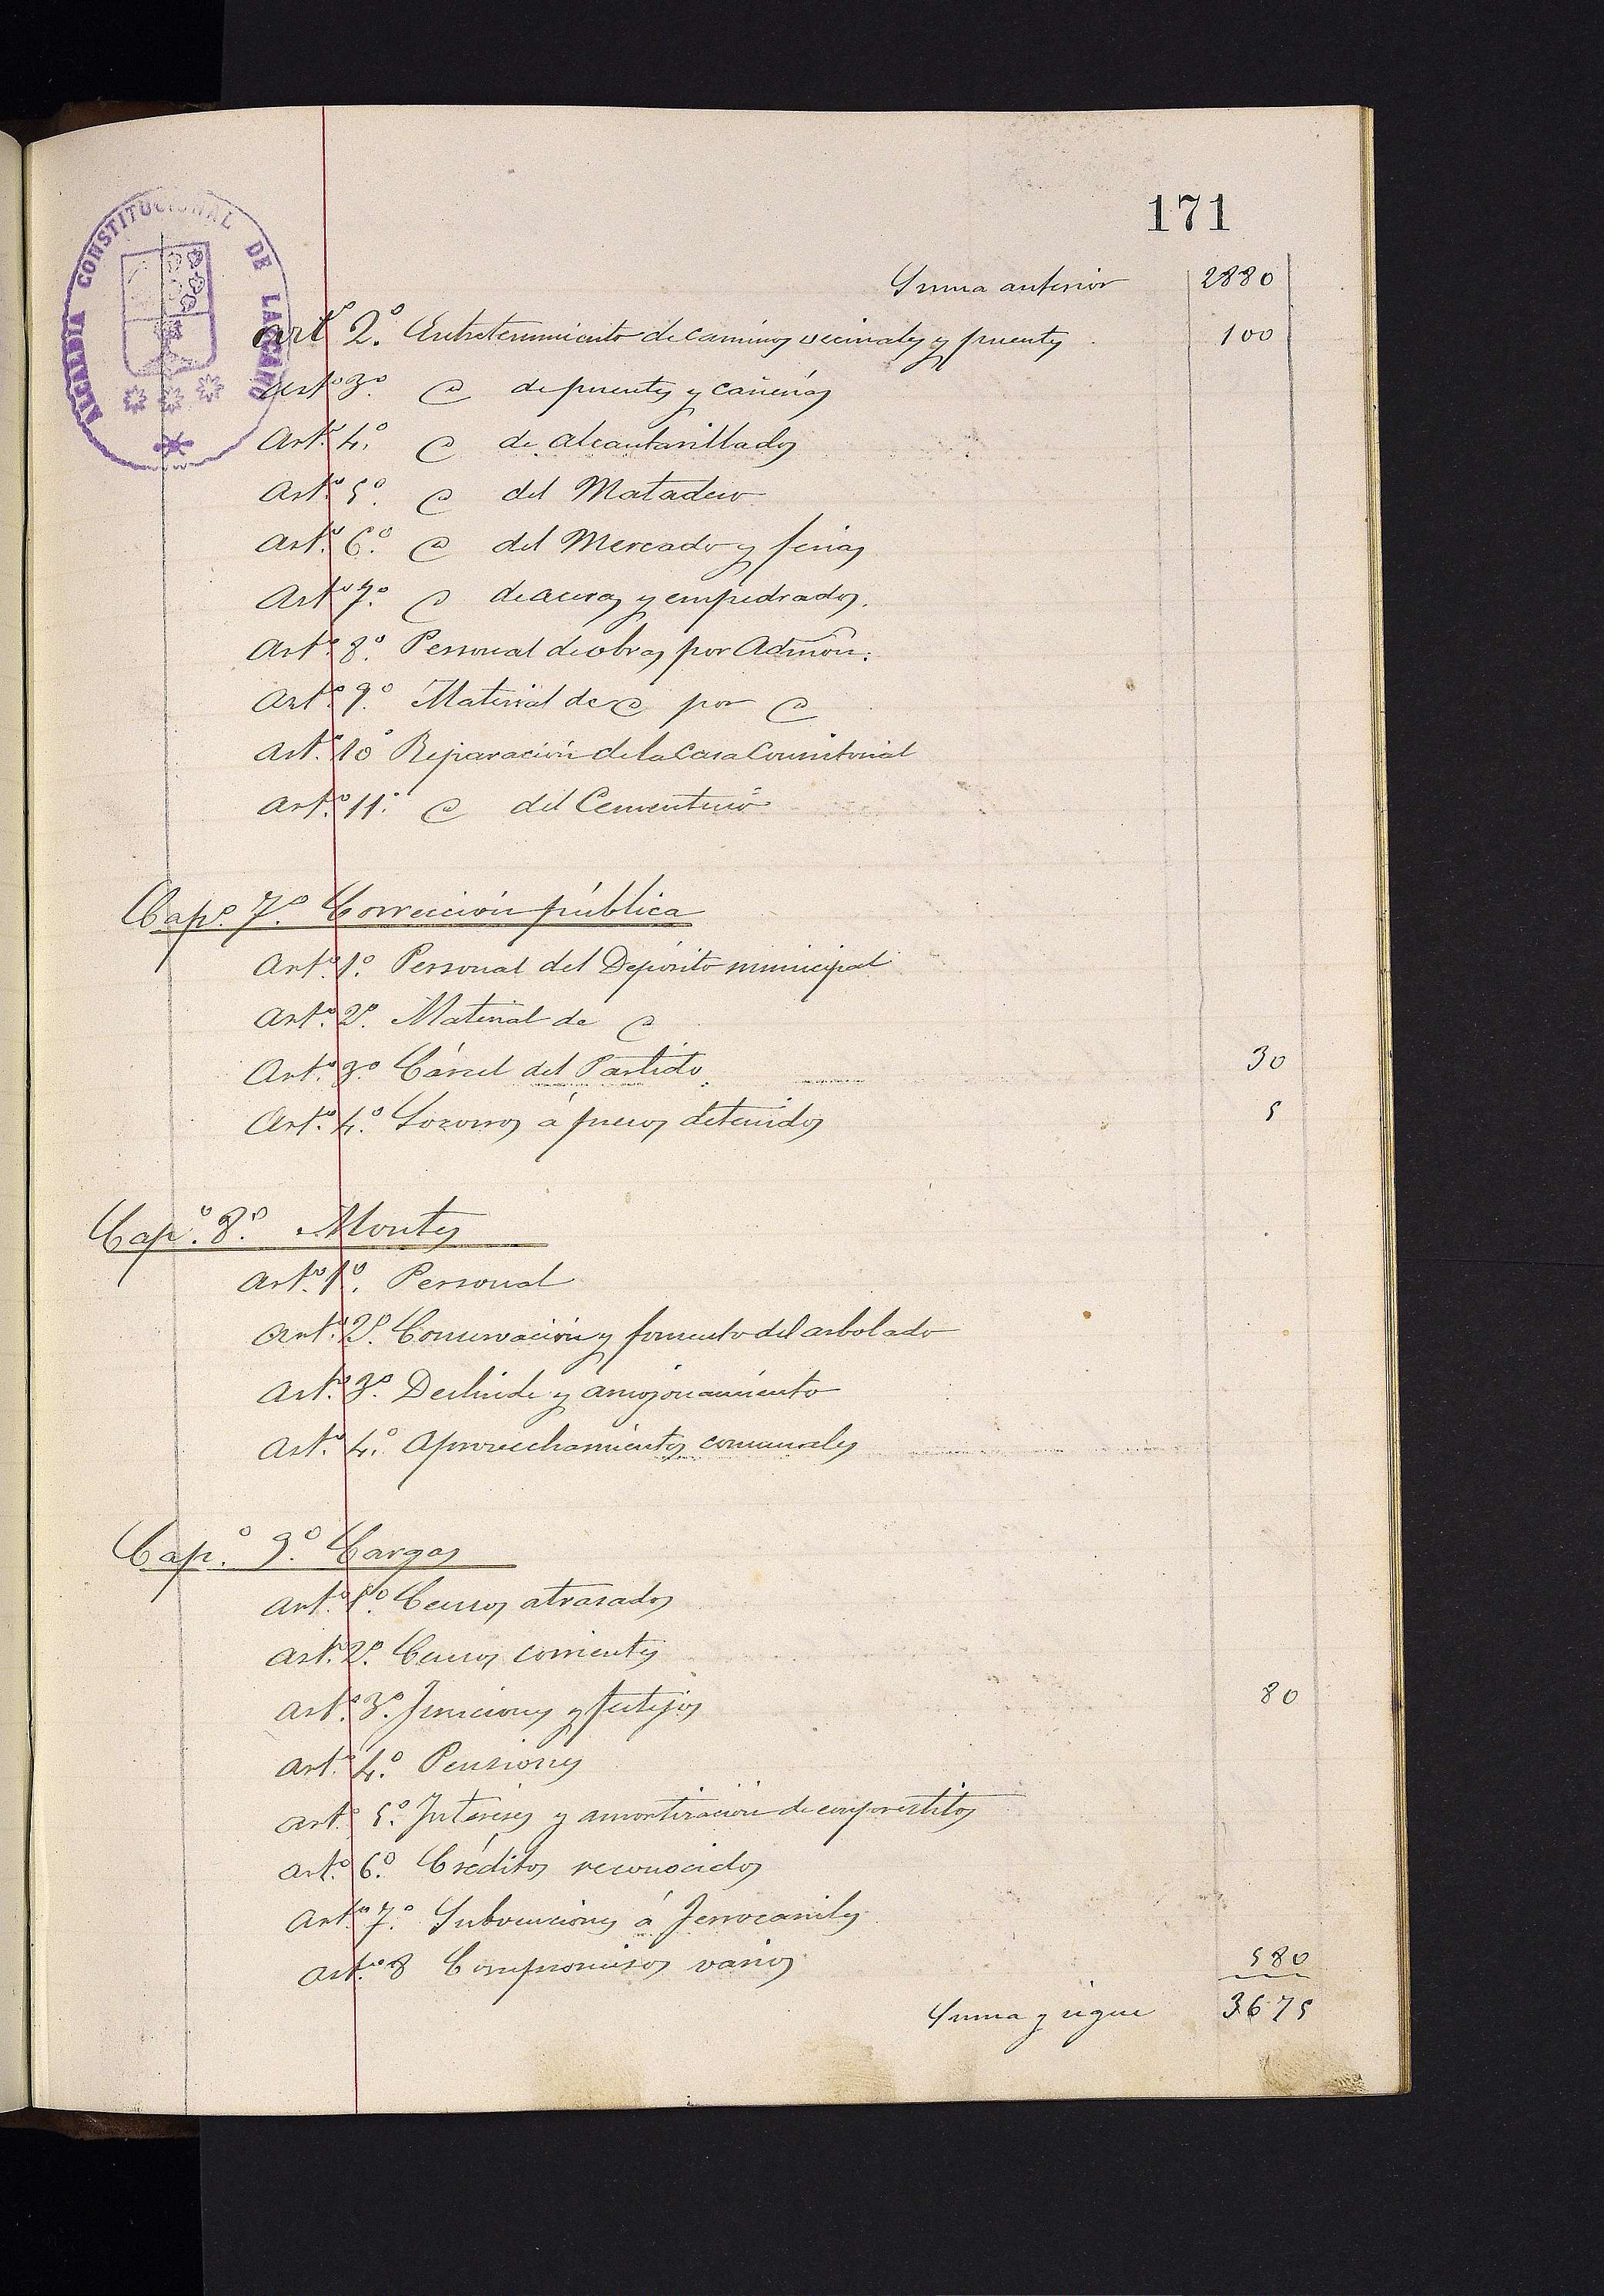 171
ALCALDIA CONSTITUCIONAL DE LAZCANO
Suma anterior 2880
Artº 2º. Entretenimiento de caminos vecinales y puentes 100
Artº 3º. @ de puentes y cañerias
Artº 4º. @ de alcantarillados
Artº 5º. @ del Matadero
Artº 6º. @ del Mercado y ferias
Artº 7º. @ de aceras y empedrados.
Artº 8º. Personal de obras por Admón.
Artº 9º. Material de @ por @
Artº 10º Reparación de la Casa Consistorial
Artº 11º @ del Cementerio
Capº. 7º. Corrección pública
Artº. 1º. Personal del Depósito municipal
Artº. 2º. Material de @
Artº. 3º. Cárcel del Partido. 30
Artº. 4º. Socorros á presos detenidos 5
Capº. 8º. Montes
Artº. 1º. Personal
Artº. 2º. Conservación y fomento del arbolado
Artº. 3º. Deslinde y amojonamiento
Artº. 4º. Aprovechamientos comunales
Capº. 9º. Cargas
Artº. 1º. Censos atrasados
Artº. 2º. Censos corrientes
Artº. 3º. Funciones y festejos 80
Artº. 4º. Pensiones
Artº. 5º. Intereses y amortización de empréstitos
Artº. 6º. Créditos reconocidos
Artº. 7º. Subvenciones á Ferrocarriles
Artº. 8 Compromisos varios 580
Suma y sigue 3675